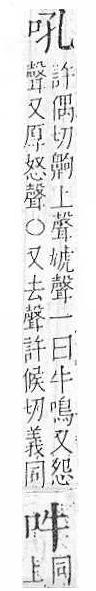 吼
許偶切齁上聲虓聲一曰牛鳴又怨
聲又厚怒聲○又去聲許候切義同
吽
同
上